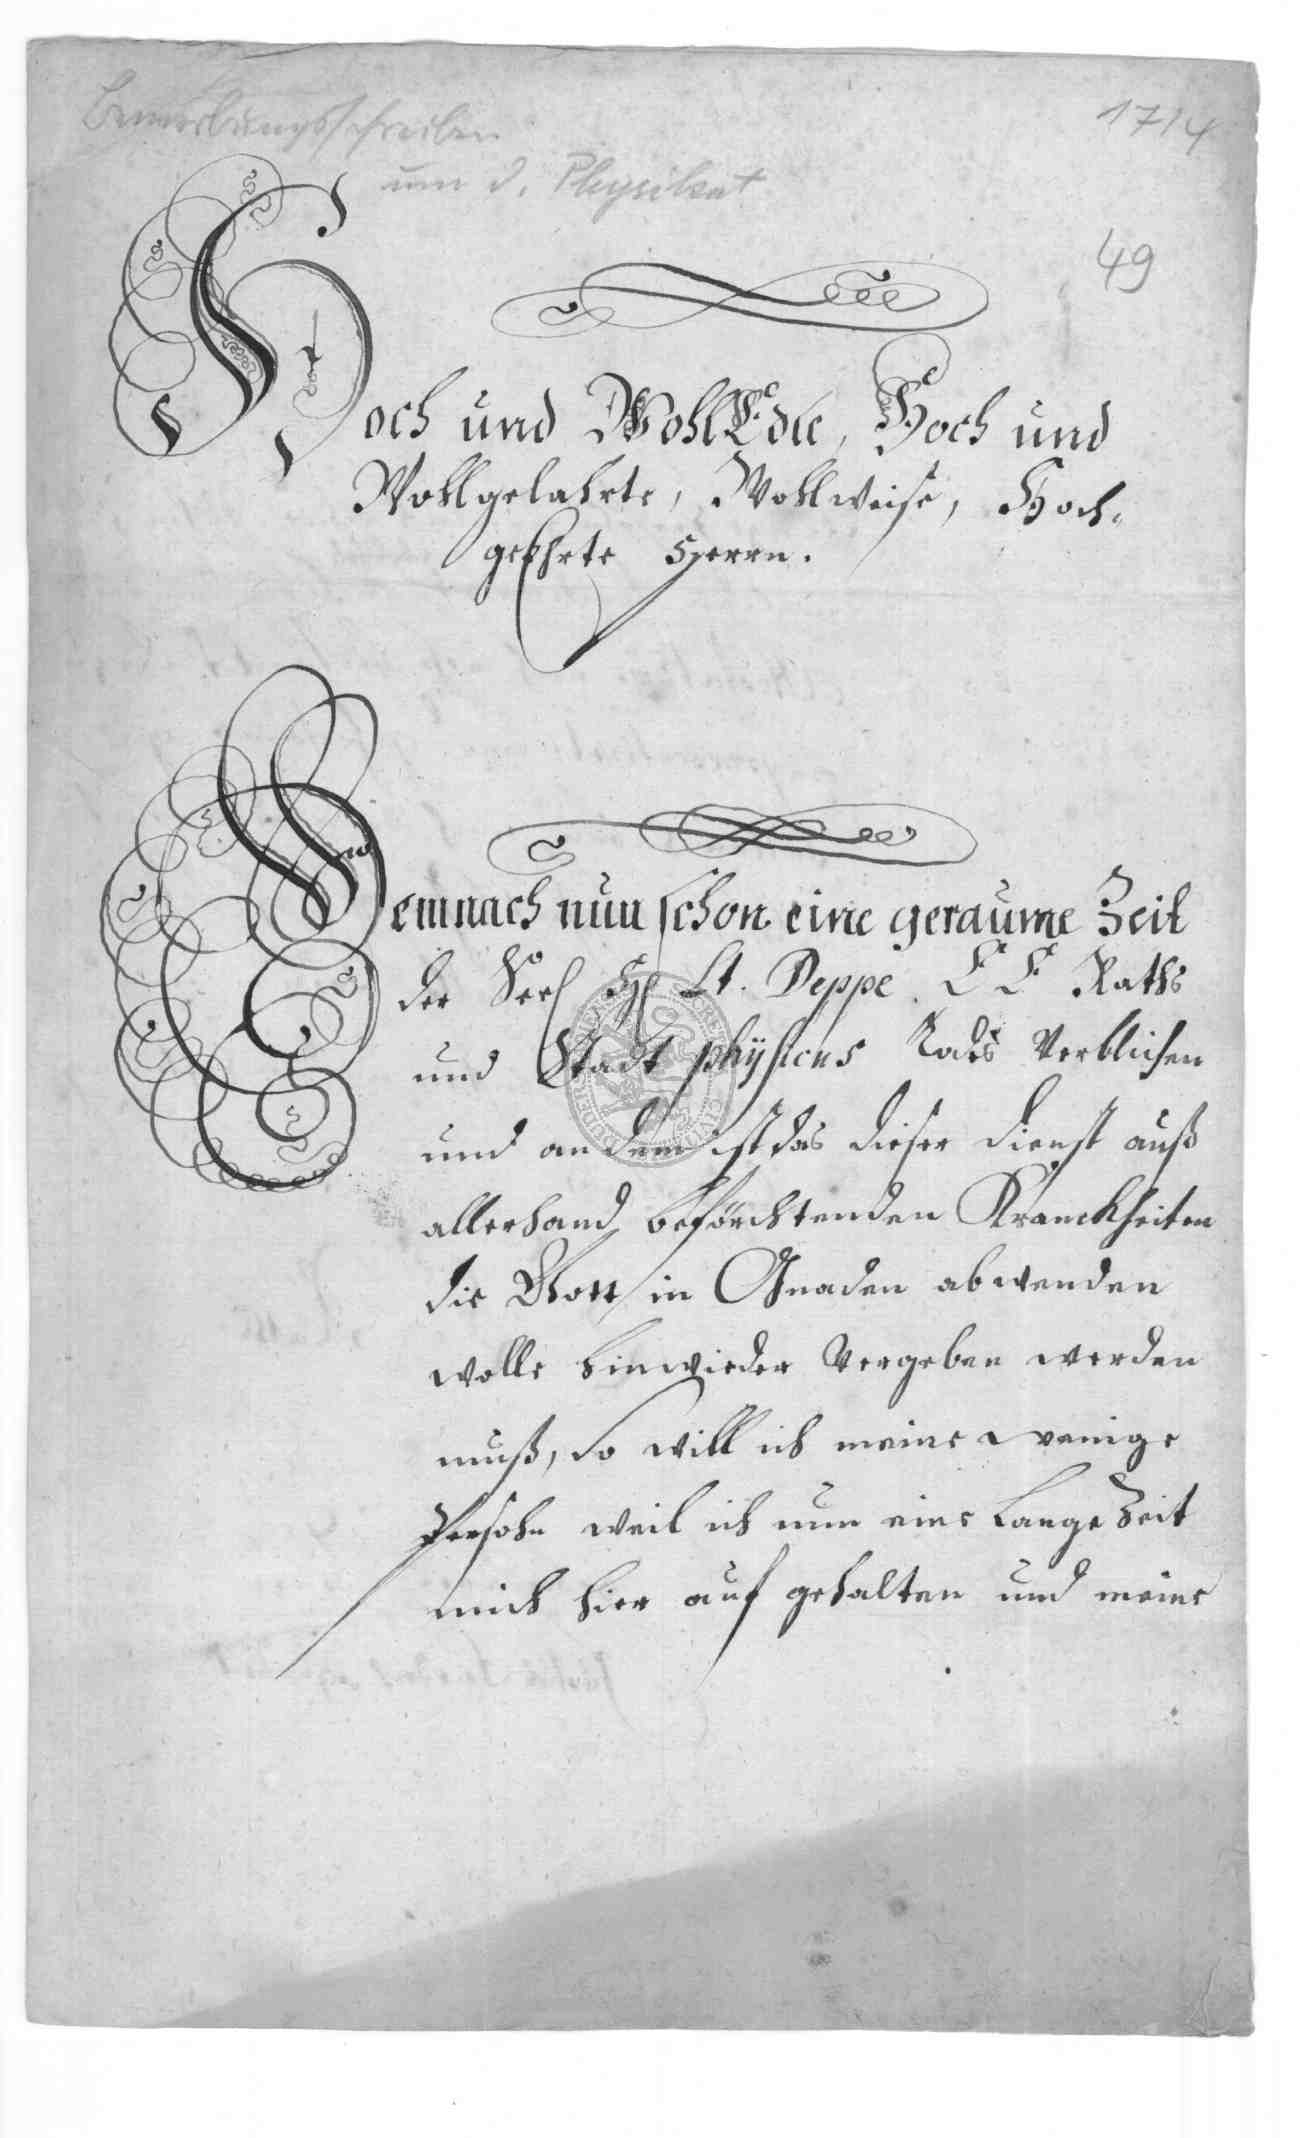 Bewerbungsschreiben
um d. Physikat
1714
49
Hoch und WohlEdle, Hoch und
Wohlgelahrte, Wohlweise, Hoch-
geEhrte Herrn.
Demnach nun schon eine geraume Zeit
der Seel H Lt. Deppe E E Raths
und Stadt physicus Todes Verblichen
und an dem ist das dieser dienst auß
allerhand beförchtenden Kranckheiten
die Gott in Gnaden abwenden
wolle hinwieder Vergeben werden
muß, So will ich meine wenige
Persohn weil ich nun eine Lange Zeit
mich hier auf gehalten und meine